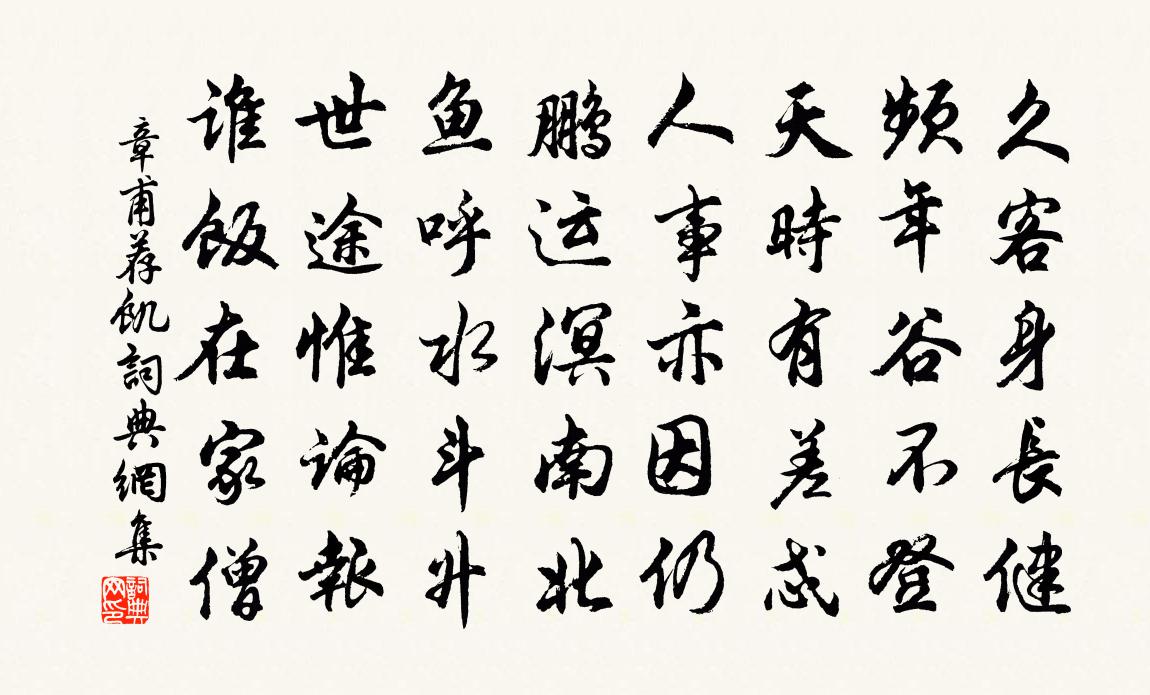 久客身長健
频年谷不登
天時有差忒
人事亦因仍
鹏运溟南北
鱼呼水斗升
世途惟論報
谁飯在家僧
章甫荐飢詞典網集
詞典网印